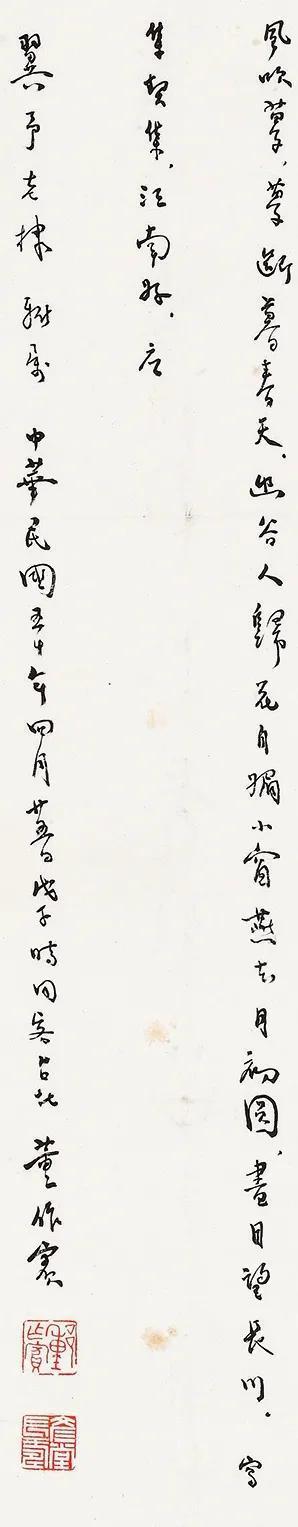 風吹夢，夢斷暮春天，幽谷人歸花自媚小窗燕去月初圓，晝日望長川。寫
集契集，江南好，應
翼予老棣 雅屬 中華民國五十年四月廿五日戊子時同客台北 董作賓